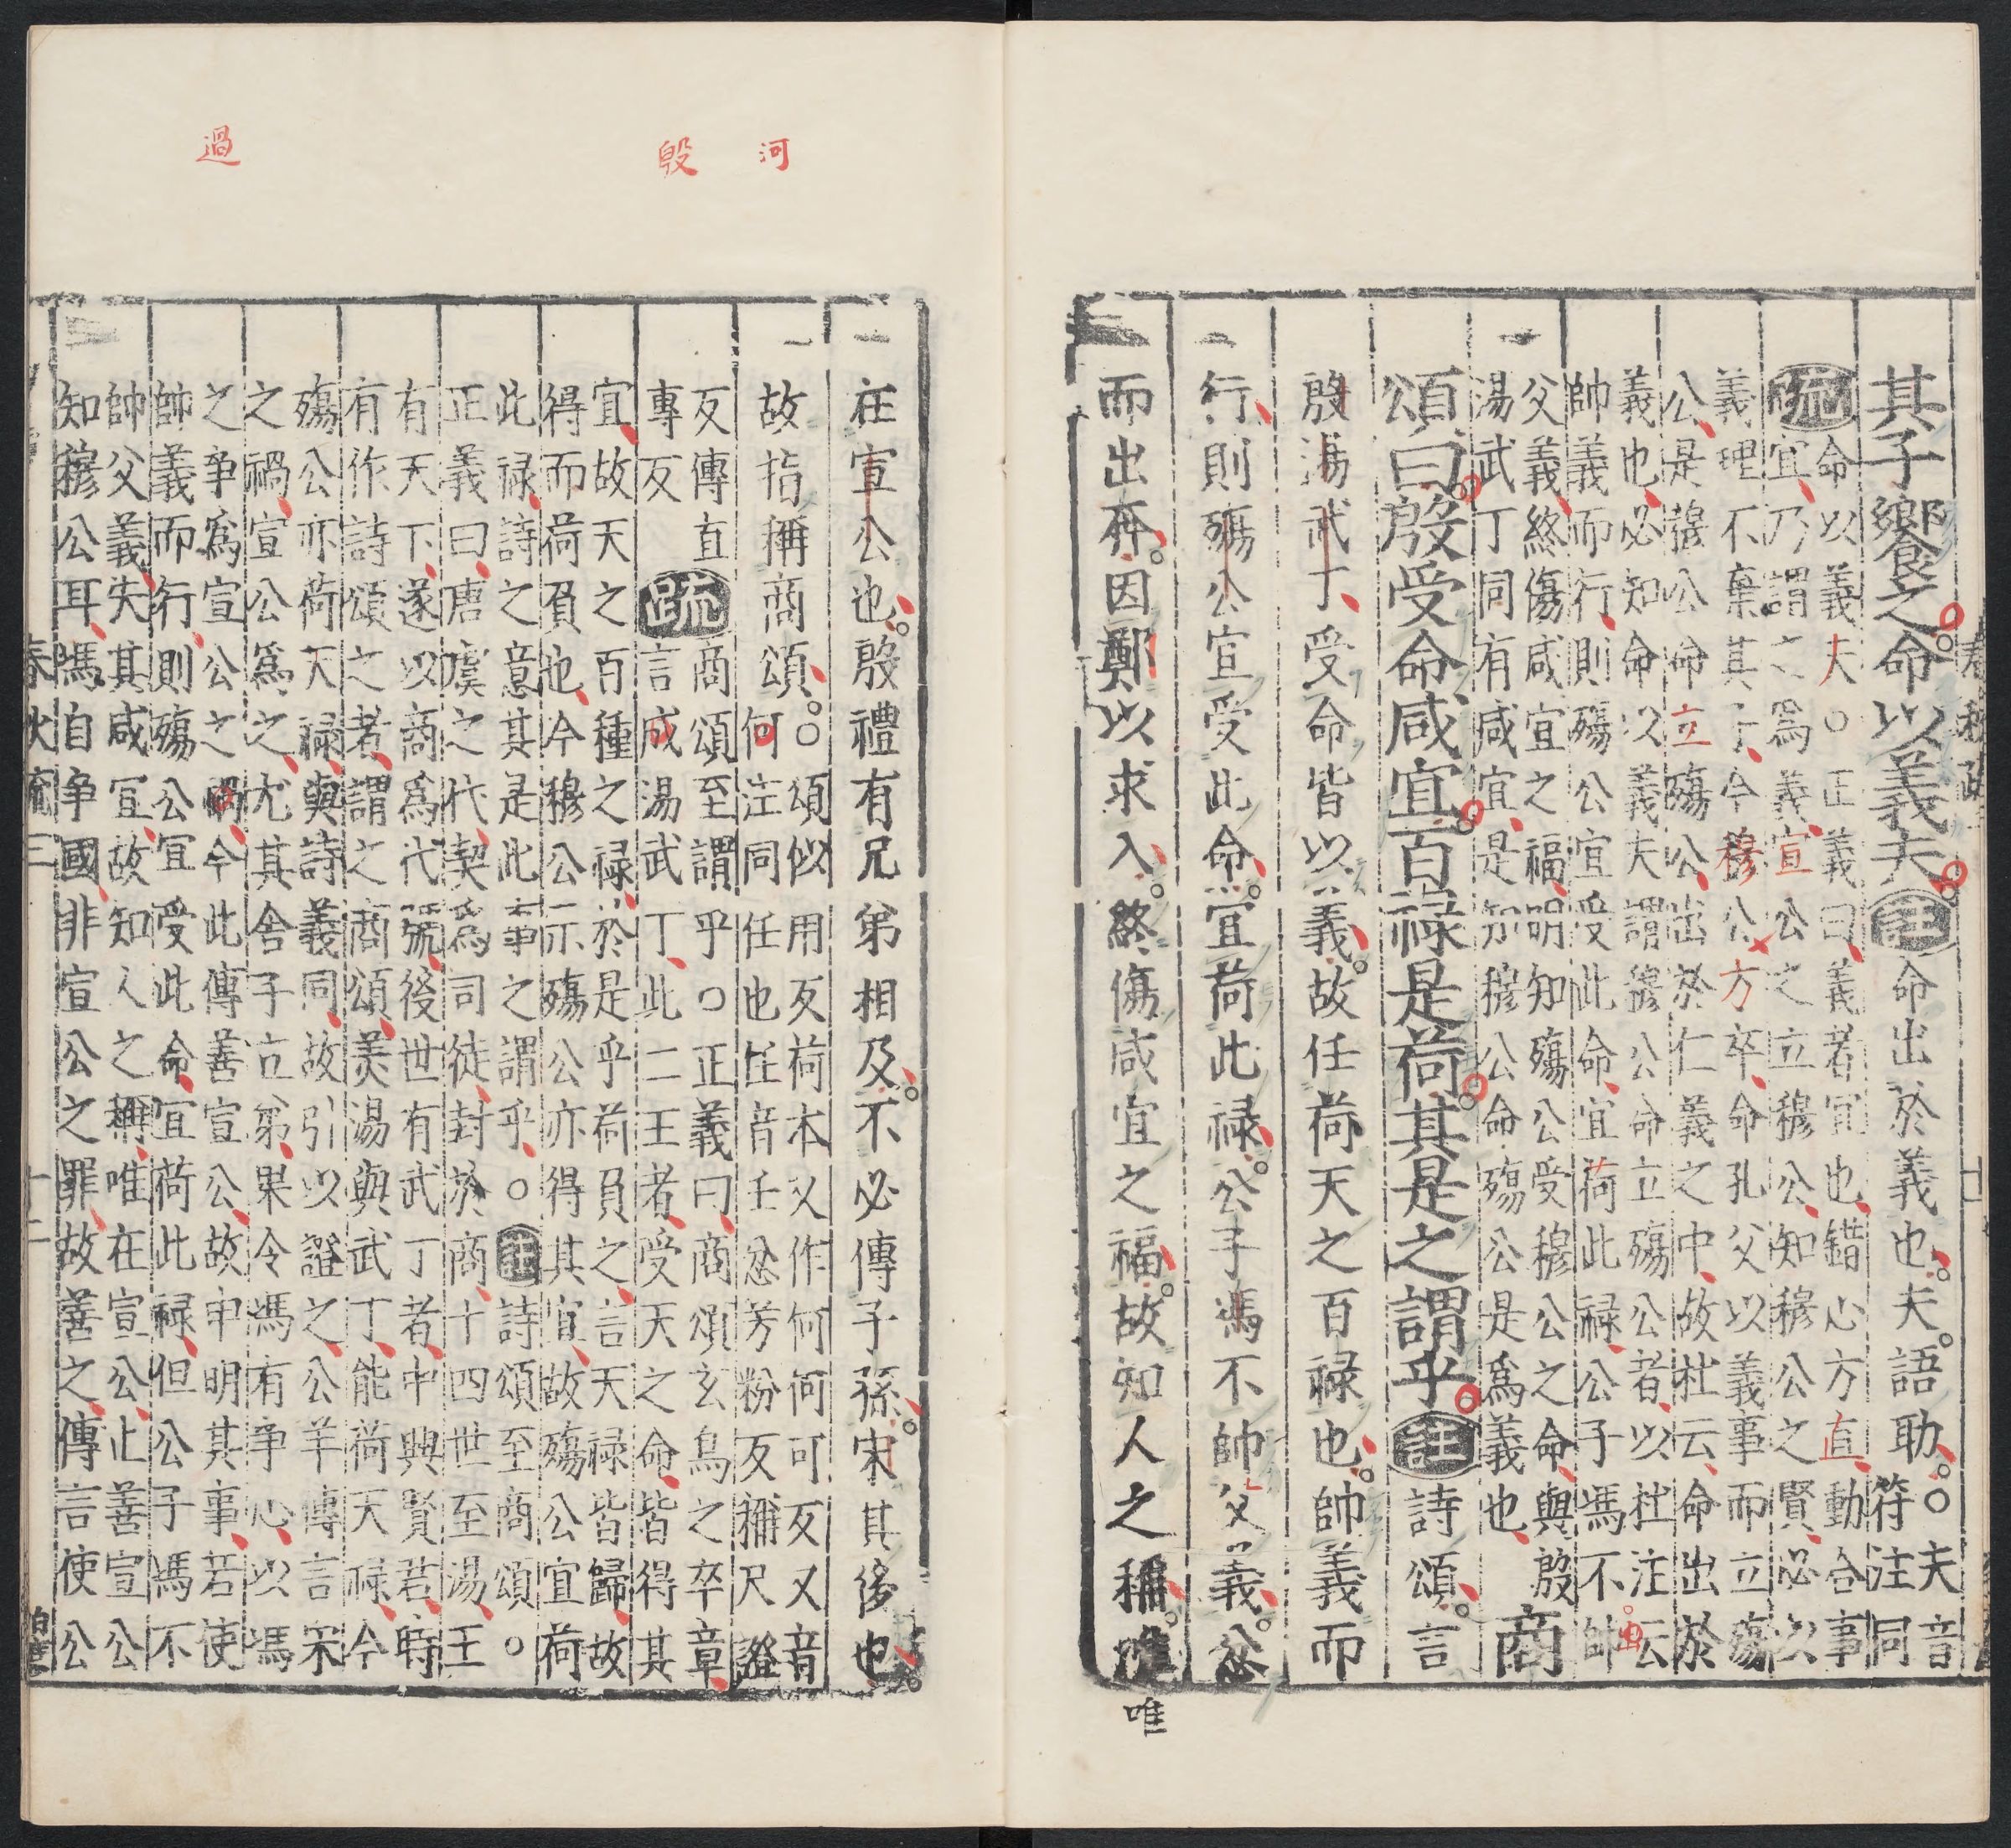 其子饗之命以義夫註命出於義也夫語助○夫音
符注同
疏命以義夫○正義曰義者宜也錯心方直動合事
宜乃謂之爲義宣公之立穆公知穆公之賢必以
義理不棄其子今穆公方卒命孔父以義事而立殤
公是穆公命立殤公出於仁義之中故杜云命出於
義也必知命以義夫謂穆公命立殤公者以杜注云
帥義而行則殤公宜受此命宜荷此祿公子馮不帥
父義終傷咸宜之福明知殤公受穆公之命與殷
湯武丁同有咸宜是知穆公命殤公是爲義也商
頌曰殷受命咸宜百祿是荷其是之謂乎註詩頌言
殷湯武丁受命皆以義故任荷天之百祿也帥義而
行則殤公宜受此命宜荷此祿公子馮不帥父義忿
而出奔因鄭以求入終傷咸宜之福故知人之稱唯
唯
河
毀
過
在宣公也殷禮有兄弟相及不必傳子孫宋其後也
故指稱商頌○頌似用反荷本又作何何可反又音
何注同任也任音壬忿芳粉反稱尺證
反傳直
專反疏商頌至謂乎○正義曰商頌玄鳥之卒章
言成湯武丁此二王者受天之命皆得其
宜故天之百種之祿於是乎荷負之言天祿皆歸故
得而荷負也今穆公示殤公亦得其宜故殤公宜荷
此祿詩之意其是此事之謂乎○註詩頌至商頌○
正義曰唐虞之代契爲司徒封於商十四世至湯王
有天下遂以商爲代號後世有武丁者中興賢君時
有作詩頌之者謂之商頌美湯與武丁能荷天祿今
殤公亦荷天祿與詩義同故引以證之公羊傳言宋
之禍宣公爲之尤其舍子立弟果令馮有爭心以馮
之爭爲宣公之禍今此傳善宣公故申明其事若使
帥義而行則殤公宜受此命宜荷此祿但公子馮不
帥父義失其咸宜故知人之稱唯在宣公止善宣公
知穆公耳馮自爭國非宣公之罪故善之傳言使公
春秋疏三
十二